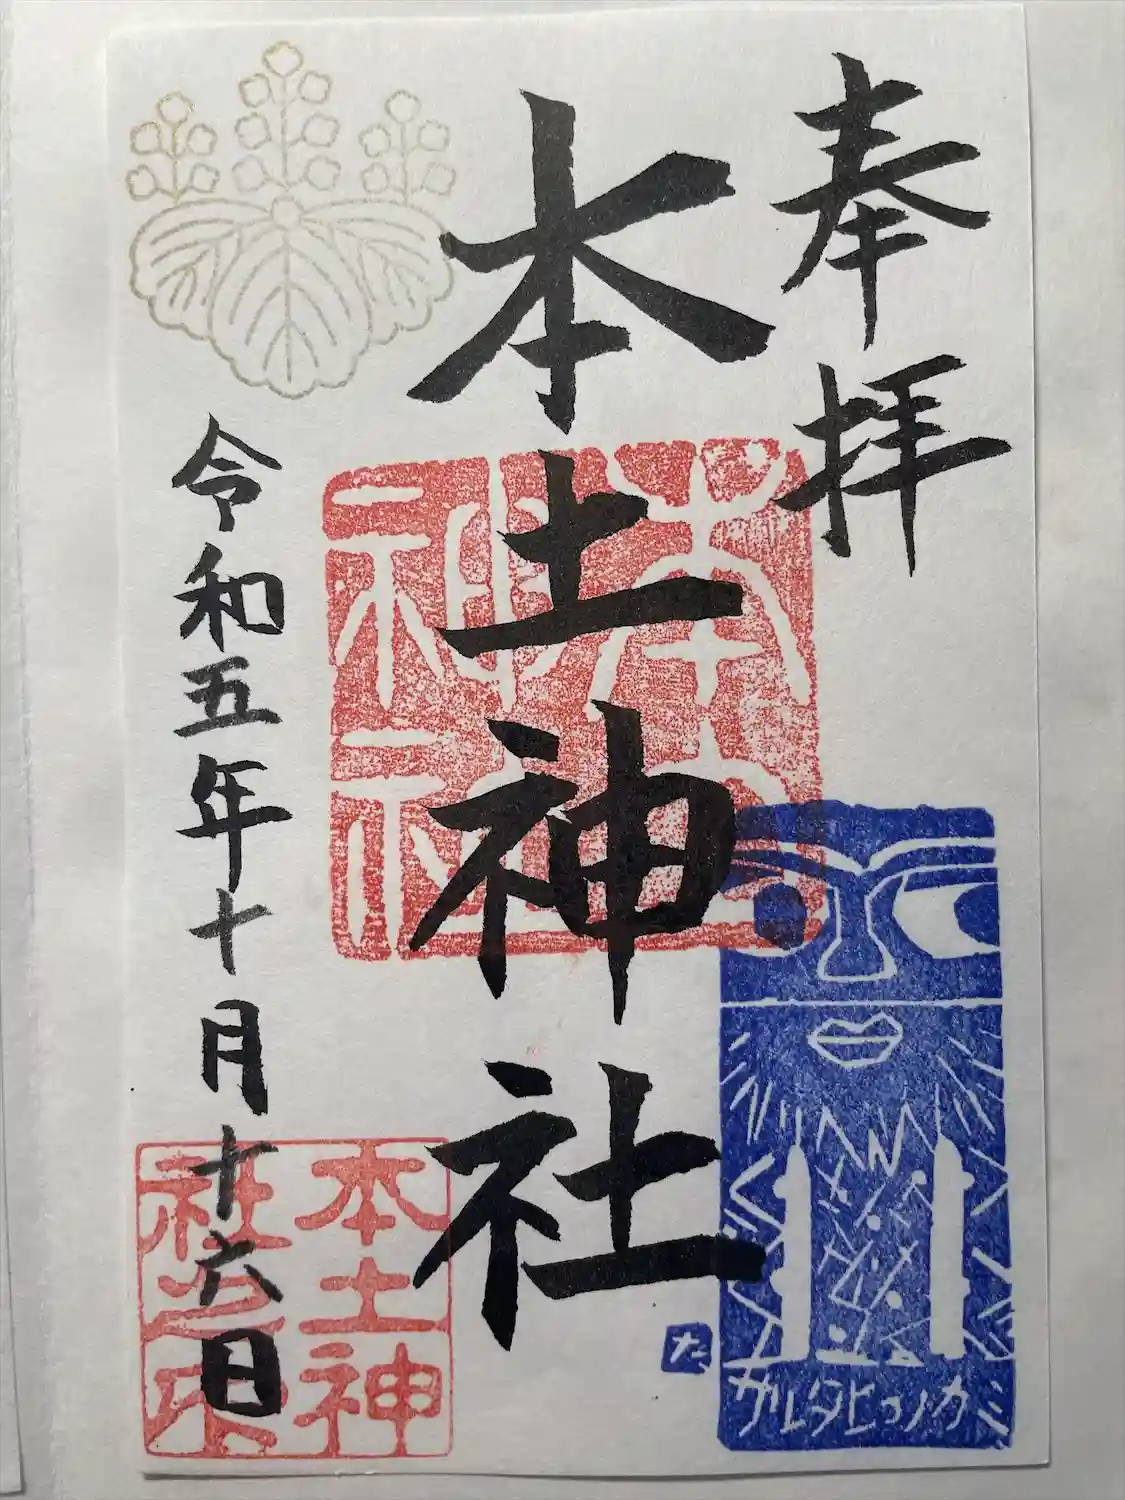 奉拝
本土神社
本土神社
令和五年十月十六日
本土神
社之印
サルタヒコノカミ
た